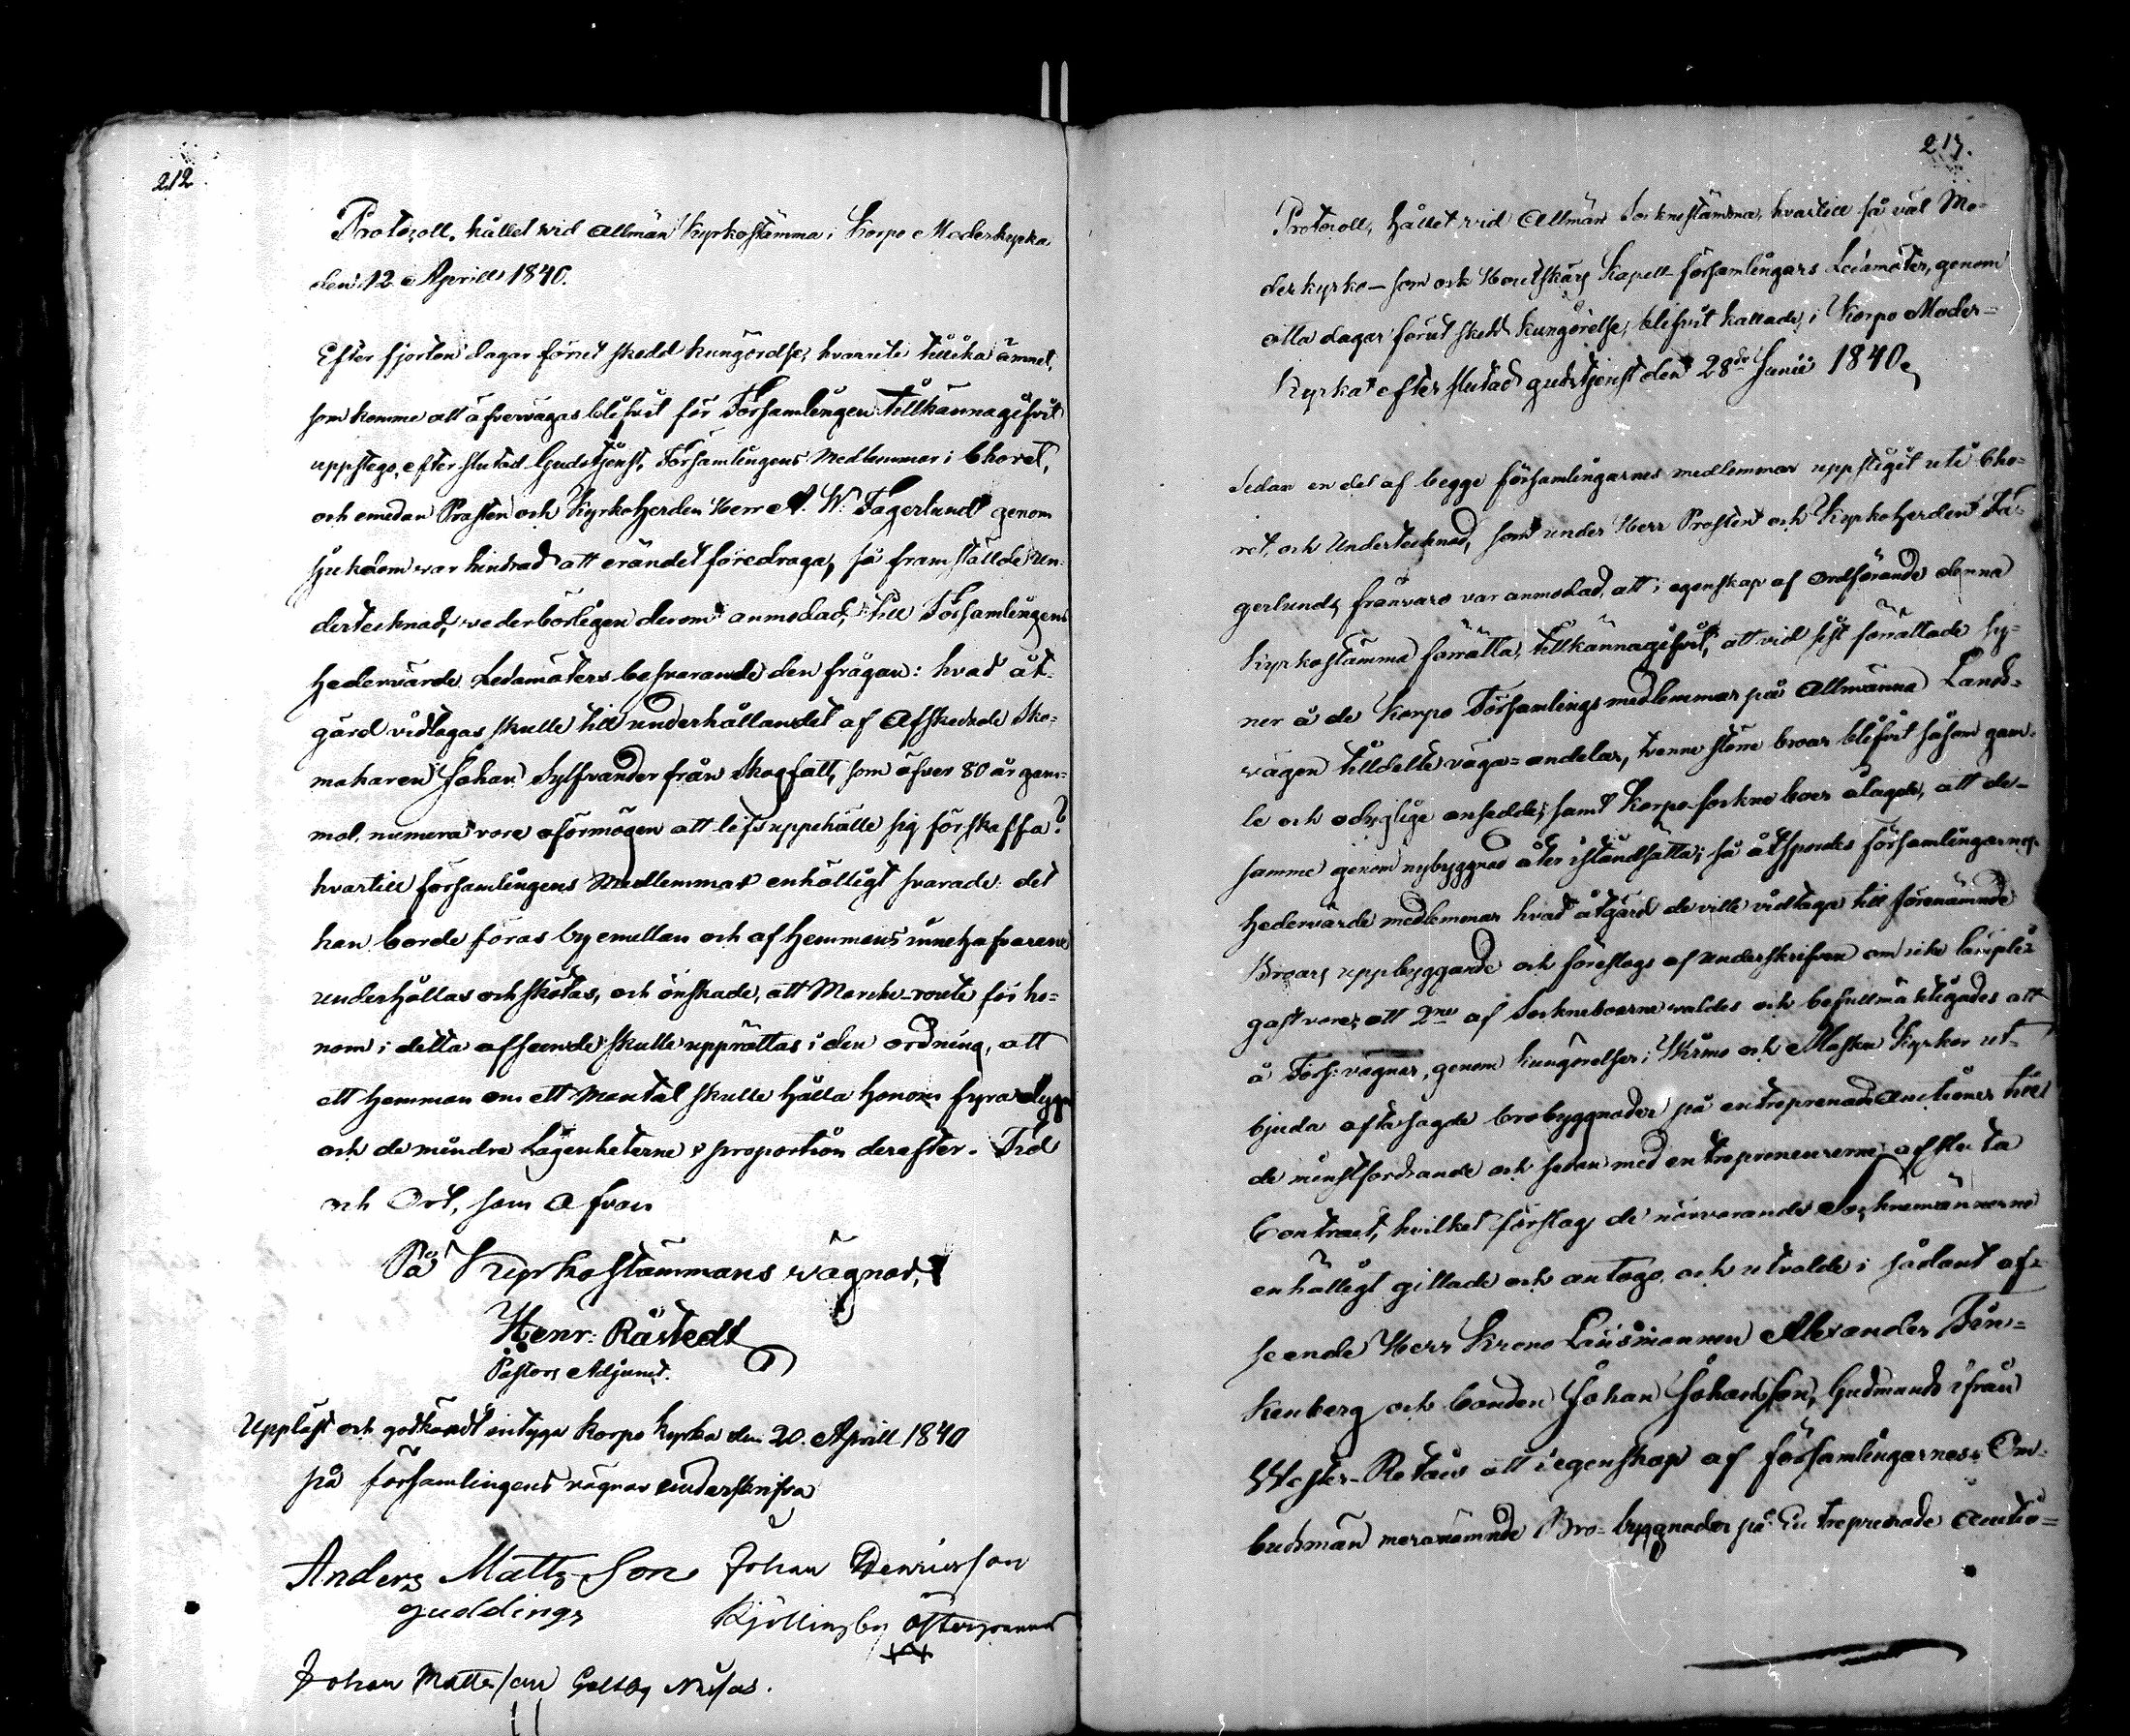 212
Protocoll, hållet vid Allmän Kyrkostämma i Korpo Moderkyrka
den 12 Aprill 1840.
Efter fjorton dagar förut skedd kungörelse, hvaruti tillika ämnet,
som komme att öfvervägas blifvit för Församlingen tillkännagifvit
uppstego, efter slutad Gudstjenst, Församlingens Medlemmar i Choret,
och emedan Prosten och Kyrkoherden Herr A. W. Fagerlund genom
sjukdom var hindrad att ärandet föredraga, så framställde Un-
dertecknad, vederbörligen derom anmodad, till Församlingens
hedervärde Ledamöters besvarande den frågan: hvad åt-
gärd vidtagas skulle till underhållandet af Afskedade Sko-
makaren Johan Sylfvander från Skogfatt, som öfver 80 år gam-
mal, numera vore oförmögen att lifsuppehälle sig förskaffa?
hvartill församlingens Medlemmar enhälligt svarade: det
han borde föras by emellan och af hemmens innehafvarene
underhållas och skötas, och önskade, att Marche-route för ho-
nom i detta afseende skulle upprättas i den ordning, att
ett hemman om ett Mantal skulle hålla honom fyra dygn
och de mindre Lägenheterne i proportion derefter. Tid
och Ort, som ofvan
På Kyrkostämmans vägnar,
Henr: Råstedt
Pastors Adjunct.
Uppläst och godkändt intyga Korpo Kyrka den 20. Aprill 1840
på församlingens vägnar underskrifva
Anders Matts Son Johan Henricsson
guddings Kjellingby Östergrannas
Johan Mattesson Galtby Nisas.
213.
Protocoll, hållet vid Allmän Socknestämma, hvartill så väl Mo-
derkyrko- som ock Houtskärs Kapell-församlingars Ledamöter, genom
otta dagar förut skedd kungörelse, blifvit kallade, i Korpo Moder-
Kyrka efter slutad gudstjenst den 28de Junii 1840.
Sedan en del af begge församlingarnes medlemmar uppstigit uti Cho-
ret, och Undertecknad, som under Herr Prosten och Kyrkoherden Fa-
gerlunds frånvaro var anmodad, att i egenskap af Ordförande denna
Kyrkostämma förrätta, tillkännagifvit, att vid sist förrättade Sy-
ner å de Korpo Församlings medlemmar på Allmänna Lands-
vägen tilldelte väga-andelar, tvenne större broar blifvit såsom gam-
le och odugliga ansedde, samt Korpo sockne boer ålagde, att de-
samme genom nybyggnad åter iståndsätta; så åtspordes församlingarnes
hedervärde medlemmar hvad åtgärd de ville vidtaga till förenämnde
Broars uppbyggande och föreslogs af underskrifven om icke lämpli-
gast vore, att 2ne af Sockneboerne valdes och befullmäktigades att
å Förs: vägnar, genom kungörelser i Kimo och Masku Kyrkor ut-
bjuda oftasagde brobyggnader på entreprenad Auctioner till
de minstfordrande och sedan med entrepreneurerne afsluta
Contract, hvilket förslag de närvarande Socknemännerne
enhälligt gillade och antogo, och utvalde i sådant af-
seende Herr Krono Länsmannen Alexander Fin-
kenberg och bonden Johan Johansson, Gudmunds ifrån
Wester-Retais att i egenskap af församlingarnes Om-
budsmän meranämnde Bro-byggnader på Entreprenade Auctio-